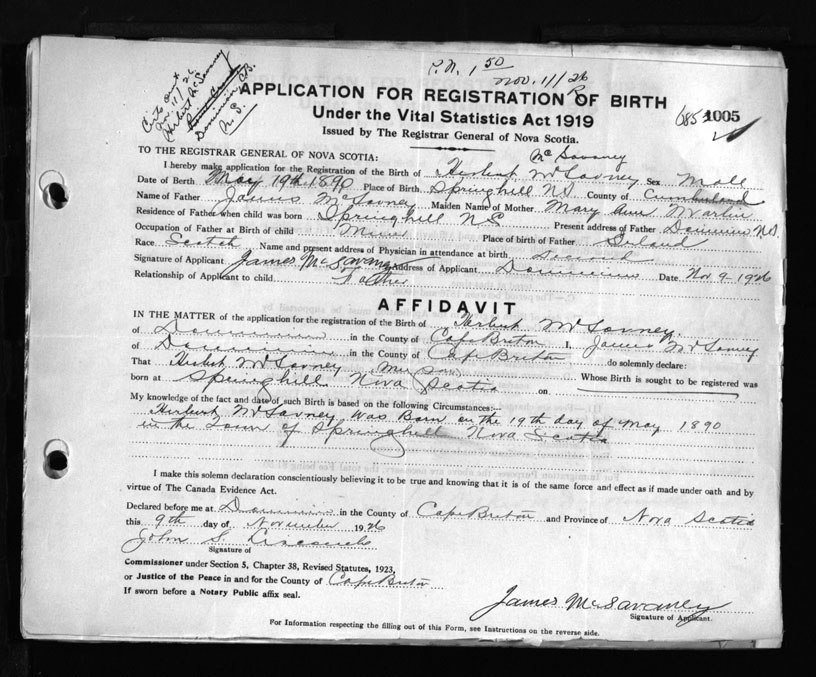 P.N. 1 50
Nov. 11/26
APPLICATION FOR REGISTRATION OF BIRTH
Under the Vital Statistics Act 1919
Issued by The Registrar General of Nova Scotia.
1005
Dominion C.B.
N. S.
McSavaney
TO THE REGISTRAR GENERAL OF NOVA SCOTIA:
I hereby make application for the Registration of the Birth of Herbert McSavney Sex Male
Date of Birth May 19th 1890 Place of Birth Springhill NS County of Cumberland
Name of Father James McSavney Maiden Name of Mother Mary Ann Martin
Residence of Father when child was born Springhill N S Present address of Father Dominion N.S.
Occupation of Father at Birth of child Miner Place of birth of Father
Race Scotch Name and present address of Physician in attendance at birth
Signature of Applicant James McSavaney Address of Applicant Dominion Date Nov 9 - 1926
Relationship of Applicant to child Father
AFFIDAVIT
IN THE MATTER of the application for the registration of the Birth of Herbert McSavney.
of Dominion in the County of Cape Breton I, James McSavney
of Dominion in the County of Cape Breton do solemnly declare:
That Herbert McSavney my son Whose Birth is sought to be registered was
born at Springhill Nova Scotia on
My knowledge of the fact and date of such Birth is based on the following Circumstances:—
Herbert McSavney Was Born on the 19th day of May 1890
in the Town of Springhill Nova Scotia
I make this solemn declaration conscientiously believing it to be true and knowing that it is of the same force and effect as if made under oath and by
virtue of The Canada Evidence Act.
Declared before me at Dominion in the County of Cape Breton and Province of Nova Scotia
this 9th day of November 1926
John S.
Signature of
Commissioner under Section 5, Chapter 38, Revised Statutes, 1923,
or Justice of the Peace in and for the County of Cape Breton
If sworn before a Notary Public affix seal.
James McSavaney
Signature of Applicant.
For Information respecting the filling out of this Form, see Instructions on the reverse side.